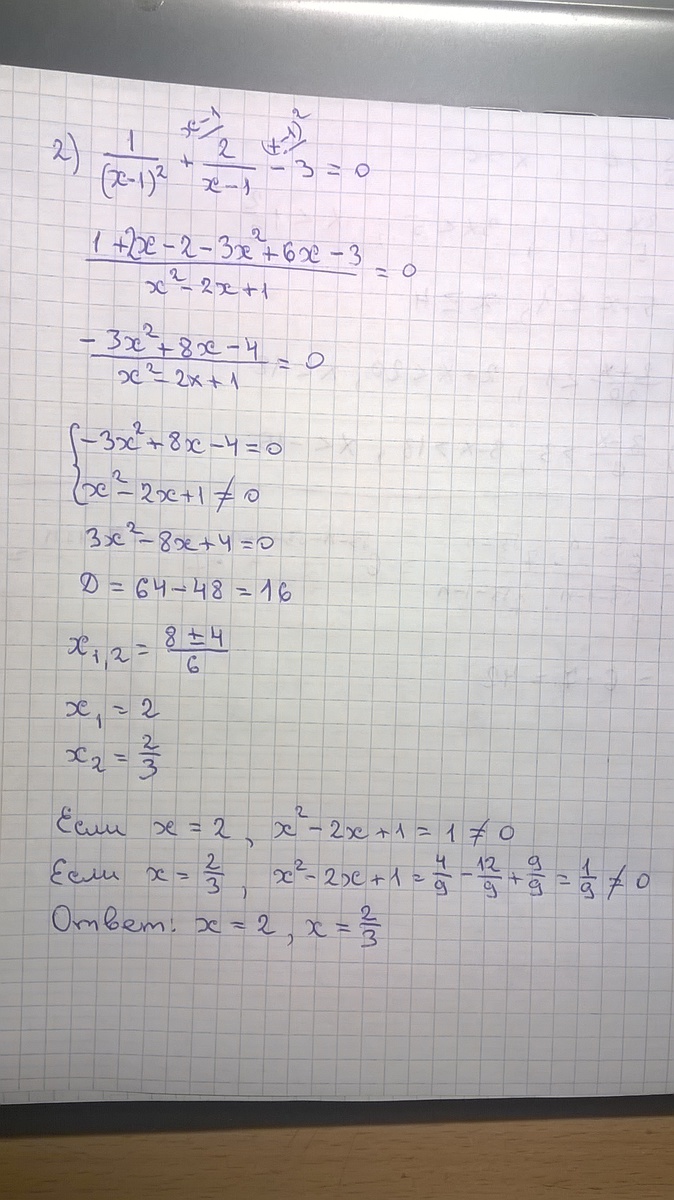 2) 1/(x-1)² + 2/(x-1) - 3 = 0
x-1 (x-1)²
(1+2x-2-3x²+6x-3)/(x²-2x+1) = 0
(-3x²+8x-4)/(x²-2x+1) = 0
{-3x²+8x-4=0
x²-2x+1≠0
3x²-8x+4=0
D = 64-48 = 16
x₁,₂ = (8±4)/6
x₁ = 2
x₂ = 2/3
Если x = 2, x²-2x+1 = 1 ≠ 0
Если x = 2/3, x²-2x+1 = 4/9 - 12/9 + 9/9 = 1/9 ≠ 0
Ответ: x = 2, x = 2/3